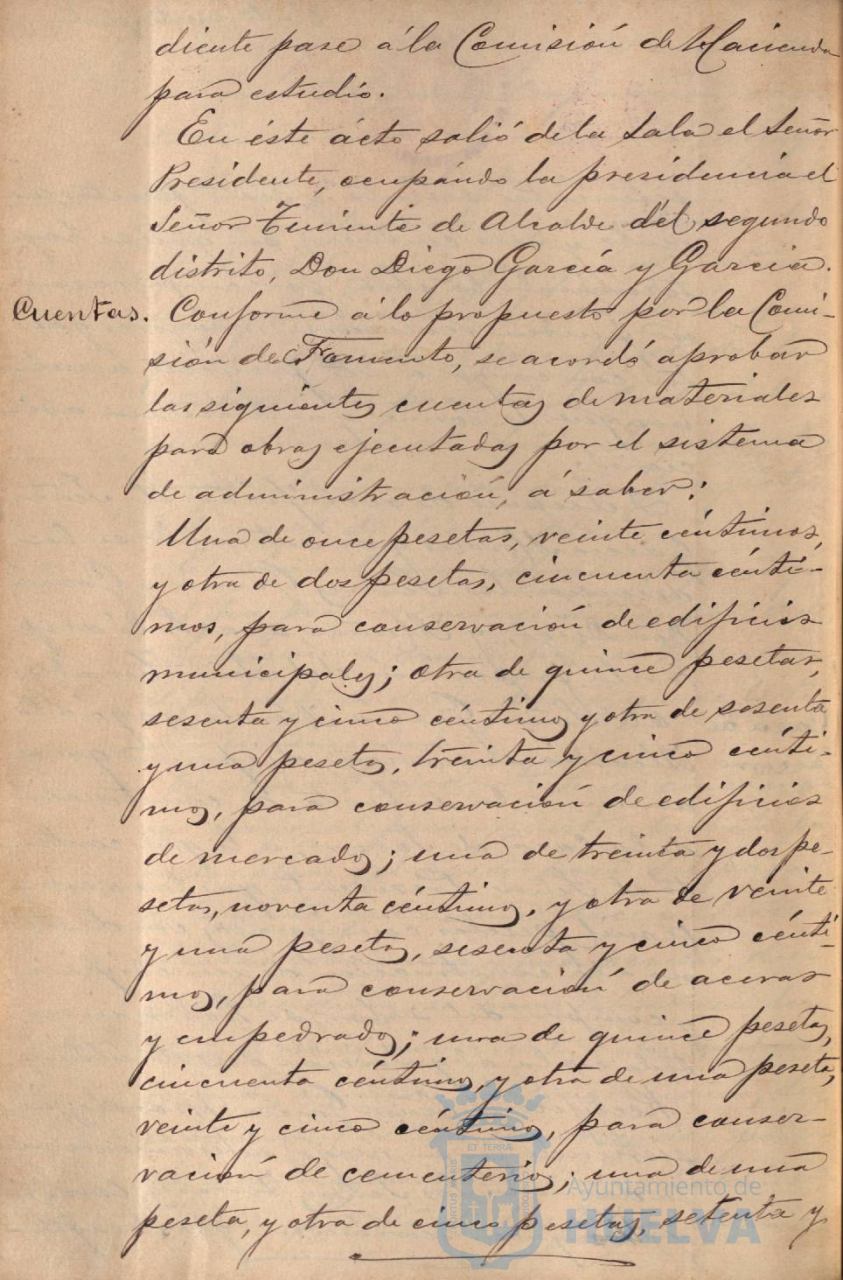 diente pase á la Comisión de Hacienda
para estudio.
En éste ácto salió de la Sala el Señor
Presidente, ocupando la presidencia el
Señor Teniente de Alcalde del segundo
distrito, Don Diego García y Garcia.
Cuentas. Conforme á lo propuesto por la Comi-
sión de Fomento, se acordó aprobar
las siguientes cuentas de materiales
para obras ejecutadas por el sistema
de administración, á saber:
Una de once pesetas, veinte céntimos,
y otra de dos pesetas, cincuenta cénti-
mos, para conservación de edificios
municipales; otra de quince pesetas,
sesenta y cinco céntimos y otra de sesenta
y una pesetas, treinta y cinco cénti-
mos, para conservación de edificios
de mercados; una de treinta y dos pe-
setas, noventa céntimos, y otra de veinte
y una pesetas, sesenta y cinco cénti-
mos, para conservación de aceras
y empedrados; una de quince pesetas,
cincuenta céntimos, y otra de una peseta,
veinte y cinco céntimos, para conser-
vación de cementerios; una de una
peseta, y otra de cinco pesetas, setenta y
ET TERRA
Ayuntamiento de
HUELVA